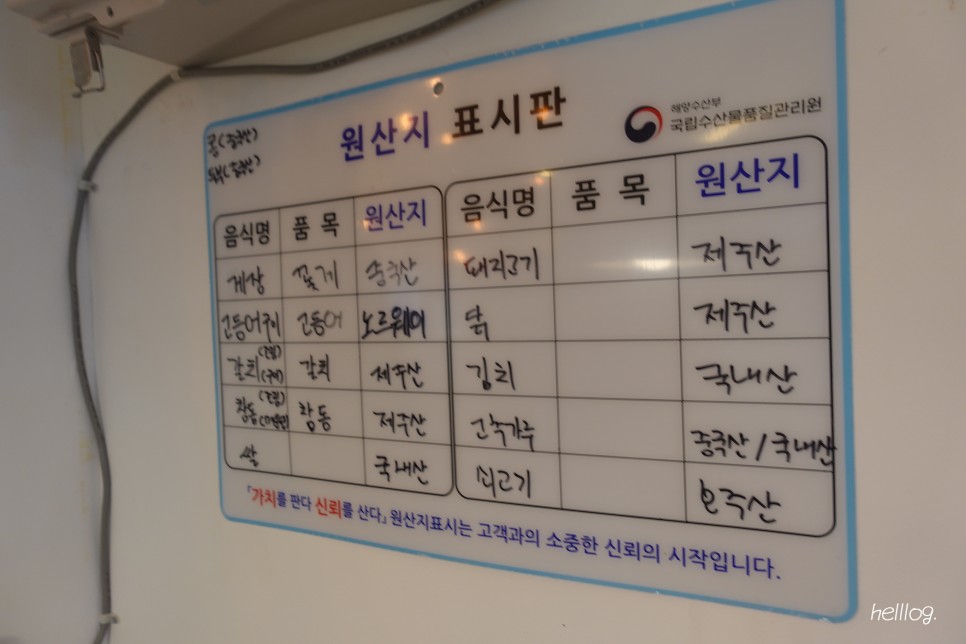 콩(중국산)
두부(중국산)
원산지 표시판
해양수산부
국립수산물품질관리원
음식명 품 목 원산지
게장 꽃게 중국산
고등어구이 고등어 노르웨이
갈치(조림)(구이) 갈치 제주산
참돔(조림) 참돔 제주산
쌀 국내산
음식명 품 목 원산지
돼지고기 제주산
닭 제주산
김치 국내산
고춧가루 중국산/국내산
쇠고기 호주산
「가치를 판다 신뢰를 산다」 원산지표시는 고객과의 소중한 신뢰의 시작입니다.
helllog.